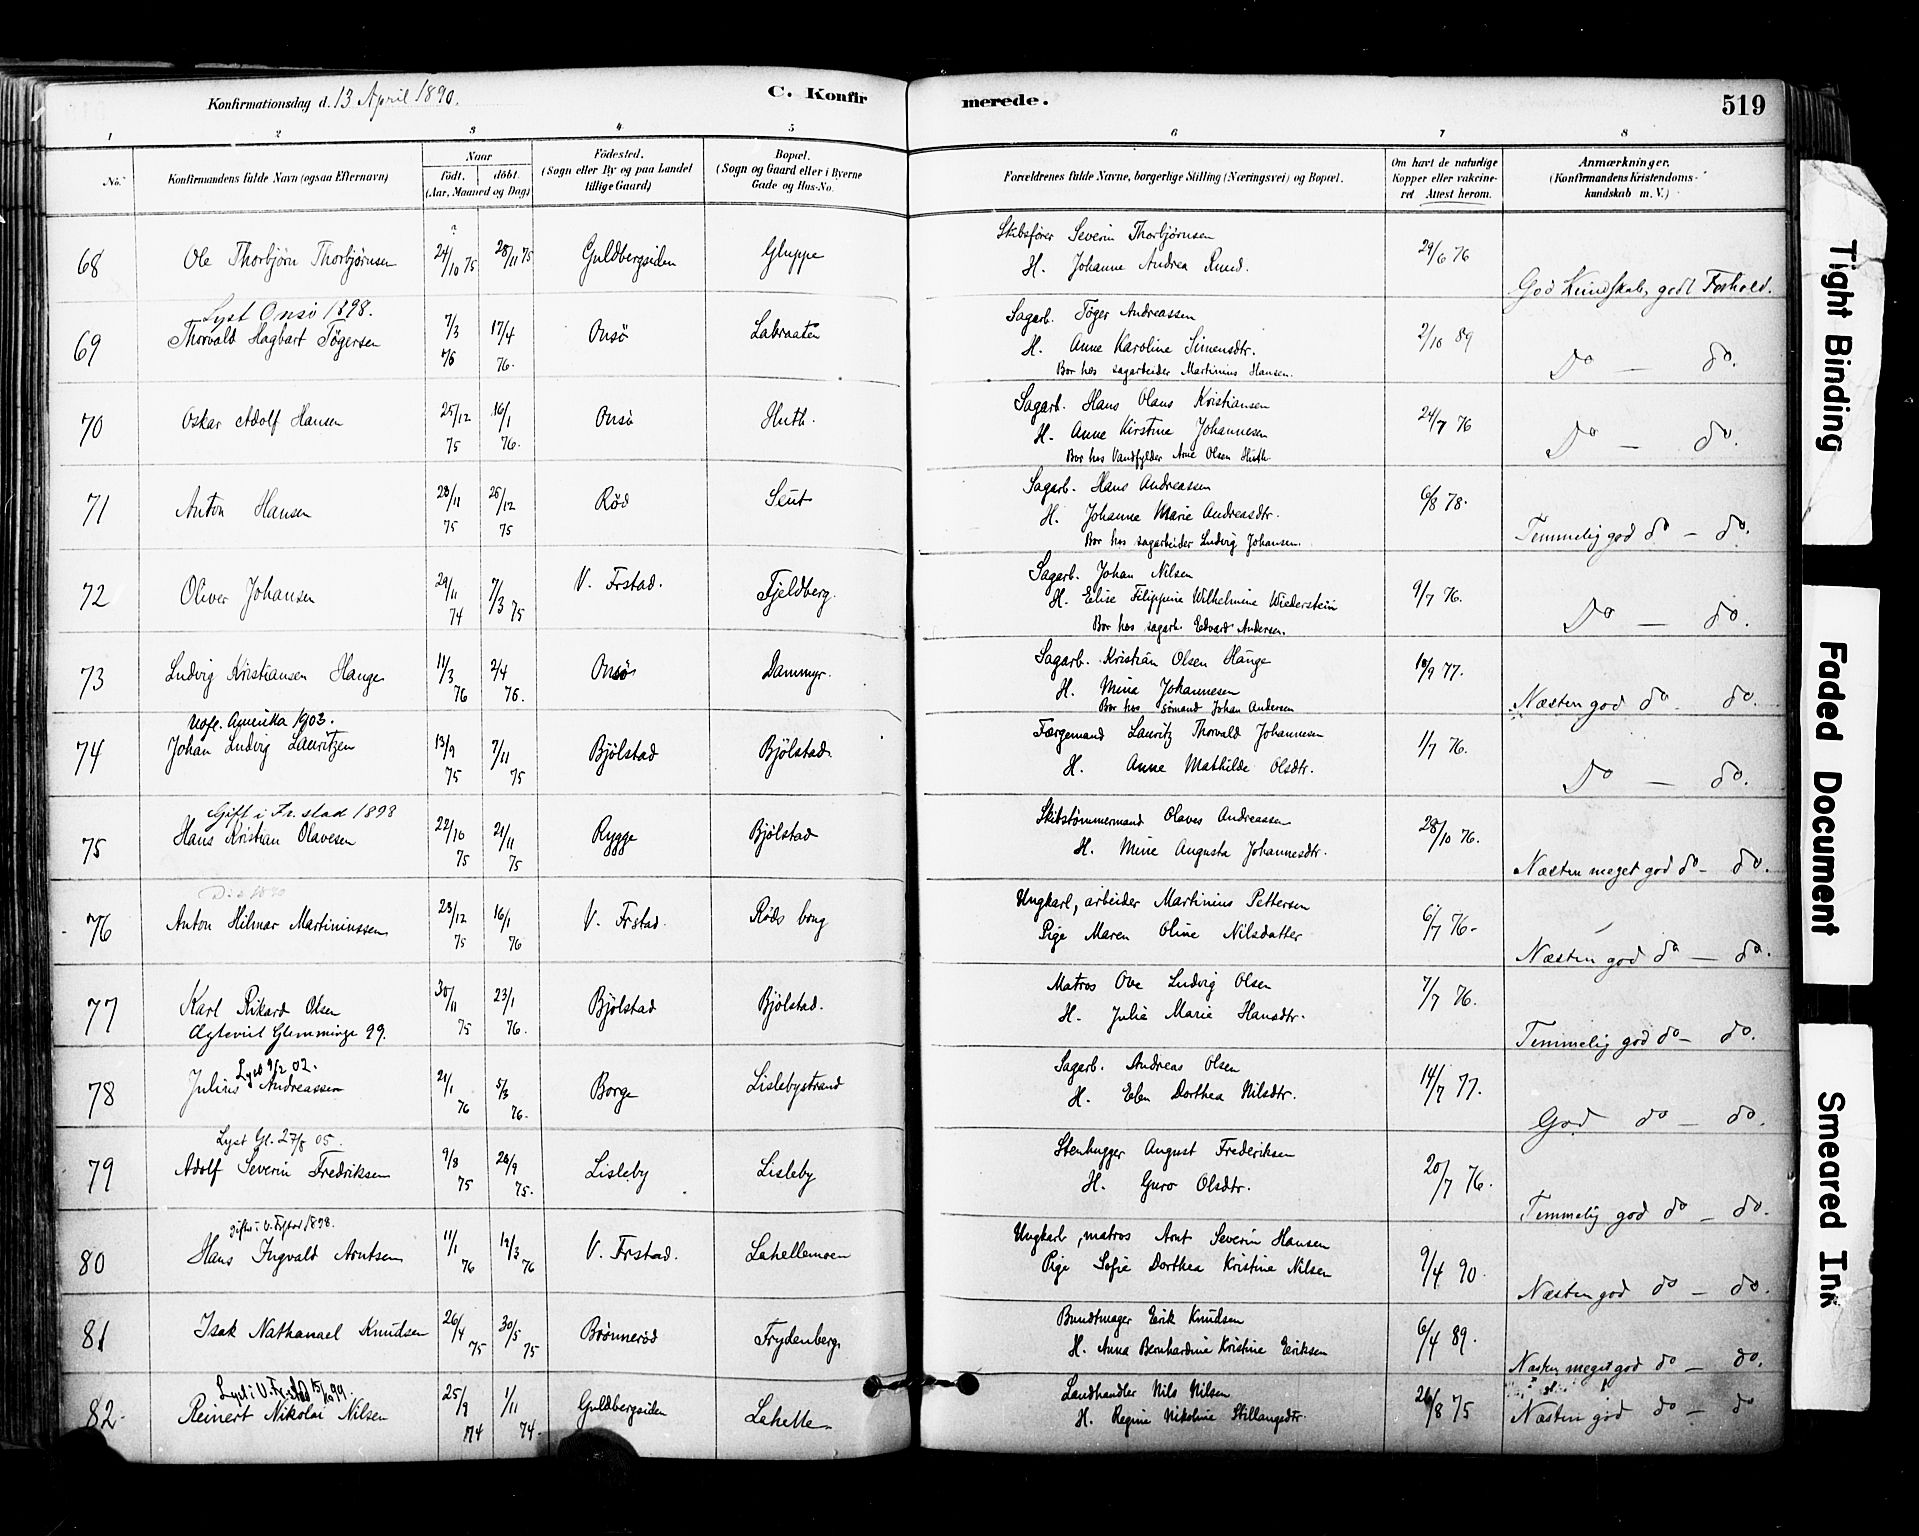 Konfirmationsdag d. 13 April 1890.
C. Konfirmerede.
519
1 2 3 4 5 6 7 8
No.
Konfirmandens fulde Navn (ogsaa Efternavn)
Naar
födt. döbt.
(Aar, Maaned og Dag)
Födested.
(Sogn eller By og paa Landet tillige Gaard)
Bopæl.
(Sogn og Gaard eller i Byerne Gade og Hus-No.
Forældrenes fulde Navne, borgerlige Stilling (Næringsvei) og Bopæl.
Om havt de naturlige Kopper eller vakcineret Attest herom.
Anmærkninger.
(Konfirmandens Kristendomskundskab m. V.)
68 Ole Thorbjörn Thorbjörnsen 24/10 75 28/11 75 Guldbergsiden Gluppe
Skibsfører Severin Thorbjørnsen
H. Johanne Andrea Rund.
29/6 76
God Kundskab, godt Forhold.
Lyst Onsö 1898.
69 Thorvald Hagbart Tögersen 7/3 76 17/4 76. Onsö Labraaten
Sagarb. Töger Andreassen
H. Anne Karoline Simensdtr.
Bor hos sagarbeider Martinius Hansen.
2/10 89
Do — do.
70 Oskar Adolf Hansen 25/12 75 16/1 76. Onsö Huth.
Sagarb. Hans Olaus Kristiansen
H. Anne Kirstine Johannesen
Bor hos Vandfylder Arne Olsen Huth
24/7 76
Do — do.
71 Anton Hansen 28/11 75 26/12 75 Röd Seut
Sagarb. Hans Andreassen
H. Johanne Marie Andreasdtr.
Bor hos sagarbeider Ludvig Johansen.
6/8 78.
Temmelig god do — do.
72 Oliver Johansen 29/11 74 7/3 75 V. Frstad. Fjeldberg.
Sagarb. Johan Nilsen
H. Elise Filippine Wilhelmine Wiederstein
Bor hos sagarb. Edvard Andersen.
9/7 76.
Do — do.
73 Ludvig Kristiansen Hauge 11/3 76 2/4 76. Onsö Dammyr.
Sagarb. Kristian Olsen Hauge
H. Mina Johannesen
Bor hos sömand Johan Andersen
10/9 77.
Næsten god do. do.
Uafl. Amerika 1903.
74 Johan Ludvig Lauritzen 13/9 75 7/11 75 Bjölstad Bjölstad.
Færgemand Lauritz Thorvald Johannesen
H. Anne Mathilde Olsdtr.
1/7 76.
Do — do.
Gift i Fr.stad 1898
75 Hans Kristian Olavesen 22/10 75 21/11 75 Rygge Bjölstad
Skibstömmermand Olaves Andreassen
H. Mine Augusta Johannesdtr.
28/10 76.
Næsten meget god do — do.
76 Anton Hilmar Martiniussen 23/12 75 16/1 76 V. Frstad. Röds brug
Ungkarl, arbeider Martinius Pettersen
Pige Maren Oline Nilsdatter
6/7 76.
Næsten god do — do.
77 Karl Rikard Olsen 30/11 75 23/1 76. Bjölstad Bjölstad.
Ægteviet Glemminge 99.
Matros Ove Ludvig Olsen
H. Julie Marie Hansdtr.
7/7 76.
Temmelig god do — do.
Lyst 9/2 02.
78 Julius Andreassen 21/1 76 5/3 76. Borge Lislebystrand
Sagarb. Andreas Olsen
H. Elen Dorthea Nilsdtr.
14/7 77.
God do — do.
Lyst Gl. 27/8 05.
79 Adolf Severin Fredriksen 9/8 75 26/9 75. Lisleby Lisleby
Stenhugger August Frederiksen
H. Guro Olsdtr.
20/7 76.
Temmelig god do — do.
gift i V. Frstad 1898.
80 Hans Ingvald Arntsen 11/1 76 12/3 76 V. Frstad. Lahellemoen
Ungkarl, matros Arnt Severin Hansen
Pige Sofie Dorthea Kristine Nilsen
9/4 90.
Næsten god do — do.
81 Isak Nathanael Knudsen 26/4 75 30/5 75 Brönneröd Frydenberg
Bundtmager Erik Knudsen
H. Anna Bernhardine Kristine Eriksen
6/4 89.
Næsten meget god do — do.
Lyst i V. Frstad 15/10 99.
82. Reinert Nikolai Nilsen 25/9 74 1/11 74. Guldbergsiden Lahelle
Landhandler Nils Nilsen
H. Regine Nikoline Stillangsdtr.
26/8 75
Næsten god do — do
Tight Binding
Faded Document
Smeared Ink